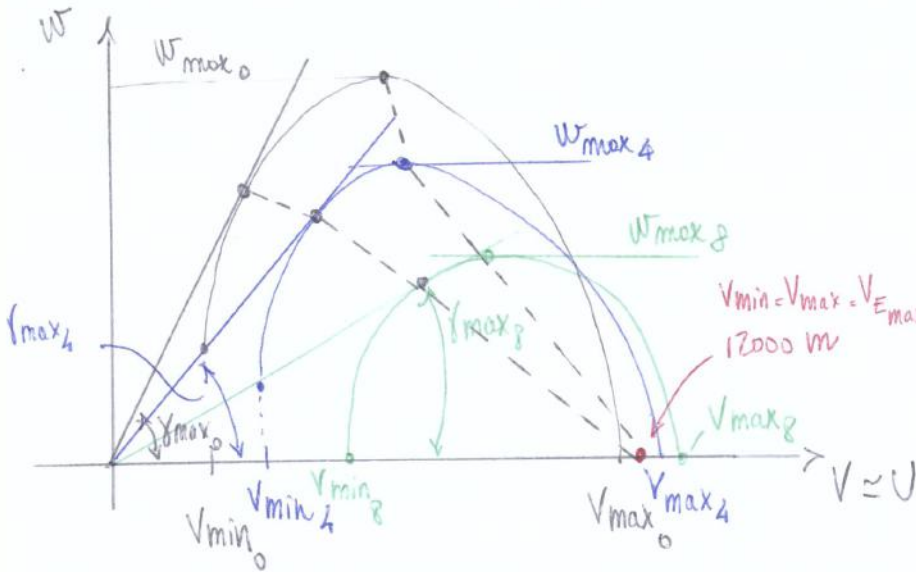 w
w max 0
w max 4
w max 8
Vmin = Vmax = V E max
12000 m
γ max 4
γ max 8
γ max 0
V max 8
V min 0
V min 4
V min 8
V max 0
V max 4
V ≃ U